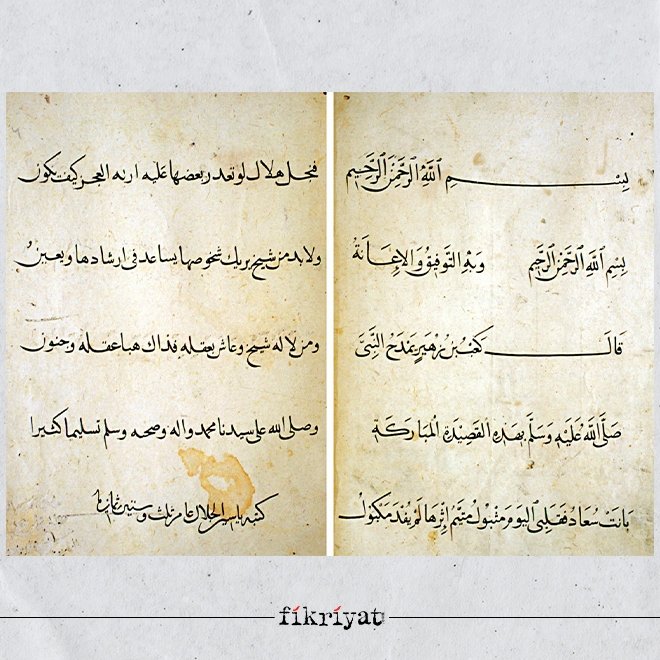 بِسْمِ اللَّهِ الرَّحْمَنِ الرَّحِيمِ
بِسْمِ اللَّهِ الرَّحْمَنِ الرَّحِيمِ وَبِهِ التَّوْفِيقُ وَالْإِعَانَةُ
قَالَ كَعْبُ بْنُ زُهَيْرٍ يَمْدَحُ النَّبِيَّ
صَلَّى اللَّهُ عَلَيْهِ وَسَلَّمَ بِهَذِهِ الْقَصِيدَةِ الْمُبَارَكَةِ
بَانَتْ سُعَادُ فَقَلْبِي الْيَوْمَ مَتْبُولُ مُتَيَّمٌ إِثْرَهَا لَمْ يُفْدَ مَكْبُولُ
هلال لو تعدر بعضها عليه ارته العجز كيف يكون
ولا بد من شيخ يريك شخوصها يساعد في ارشادها ويعينُ
ومن لا له شيخ وعاش بعقله فذاك هبا عقله وجنون
وصلى الله على سيدنا محمد وآله وصحبه وسلم تسليما كثيرا
كتبه عام ثلث وستين
fikriyat